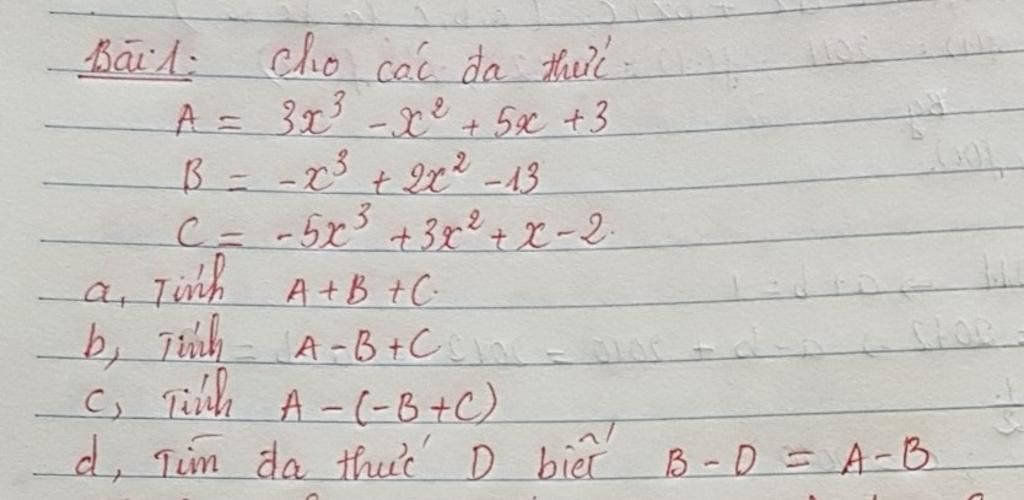 Bài 1: Cho các đa thức:
A = 3x³ - x² + 5x + 3
B = -x³ + 2x² - 13
C = -5x³ + 3x² + x - 2.
a, Tính A + B + C.
b, Tính A - B + C
c, Tính A - (-B + C)
d, Tìm đa thức D biết B - D = A - B